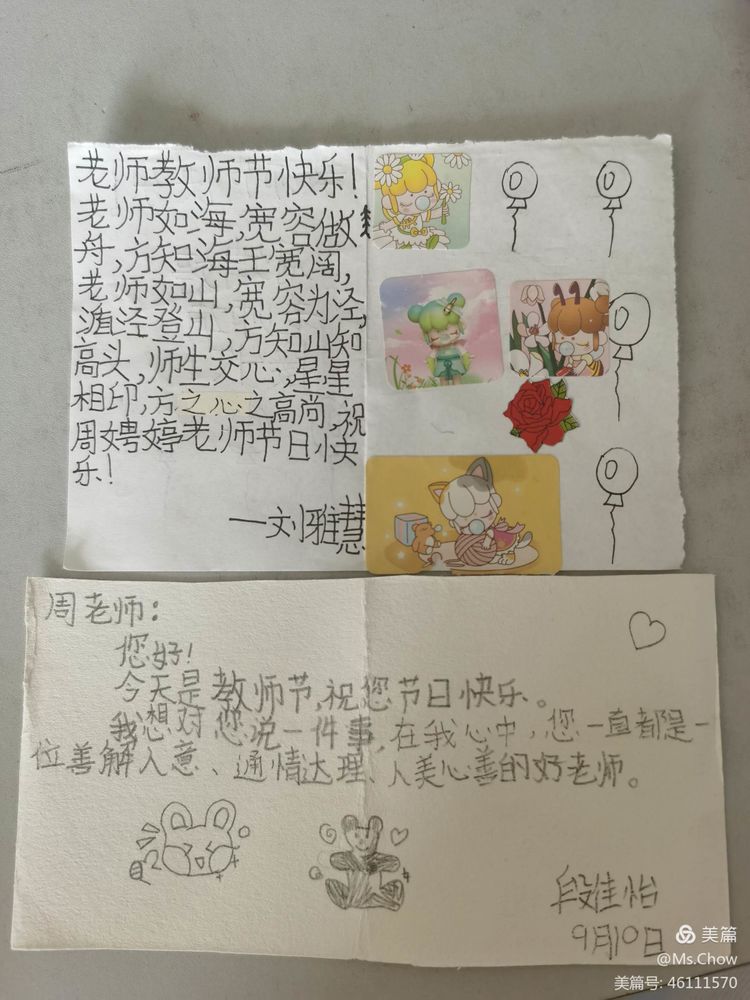 老师教师节快乐!
老师如海,宽容做
舟,方知海王宽阔,
老师如山,宽容为泾,
循泾登山,方知山知
高头,师生交心,星星
相印,方之心之高尚,祝
周娉婷老师节日快
乐!
一刘雅慧
周老师:
您好!
今天是教师节,祝您节日快乐。
我想对您说一件事,在我心中,您一直都是一
位善解人意、通情达理、人美心善的好老师。
段佳怡
9月10日
美篇
@Ms.Chow
美篇号: 46111570